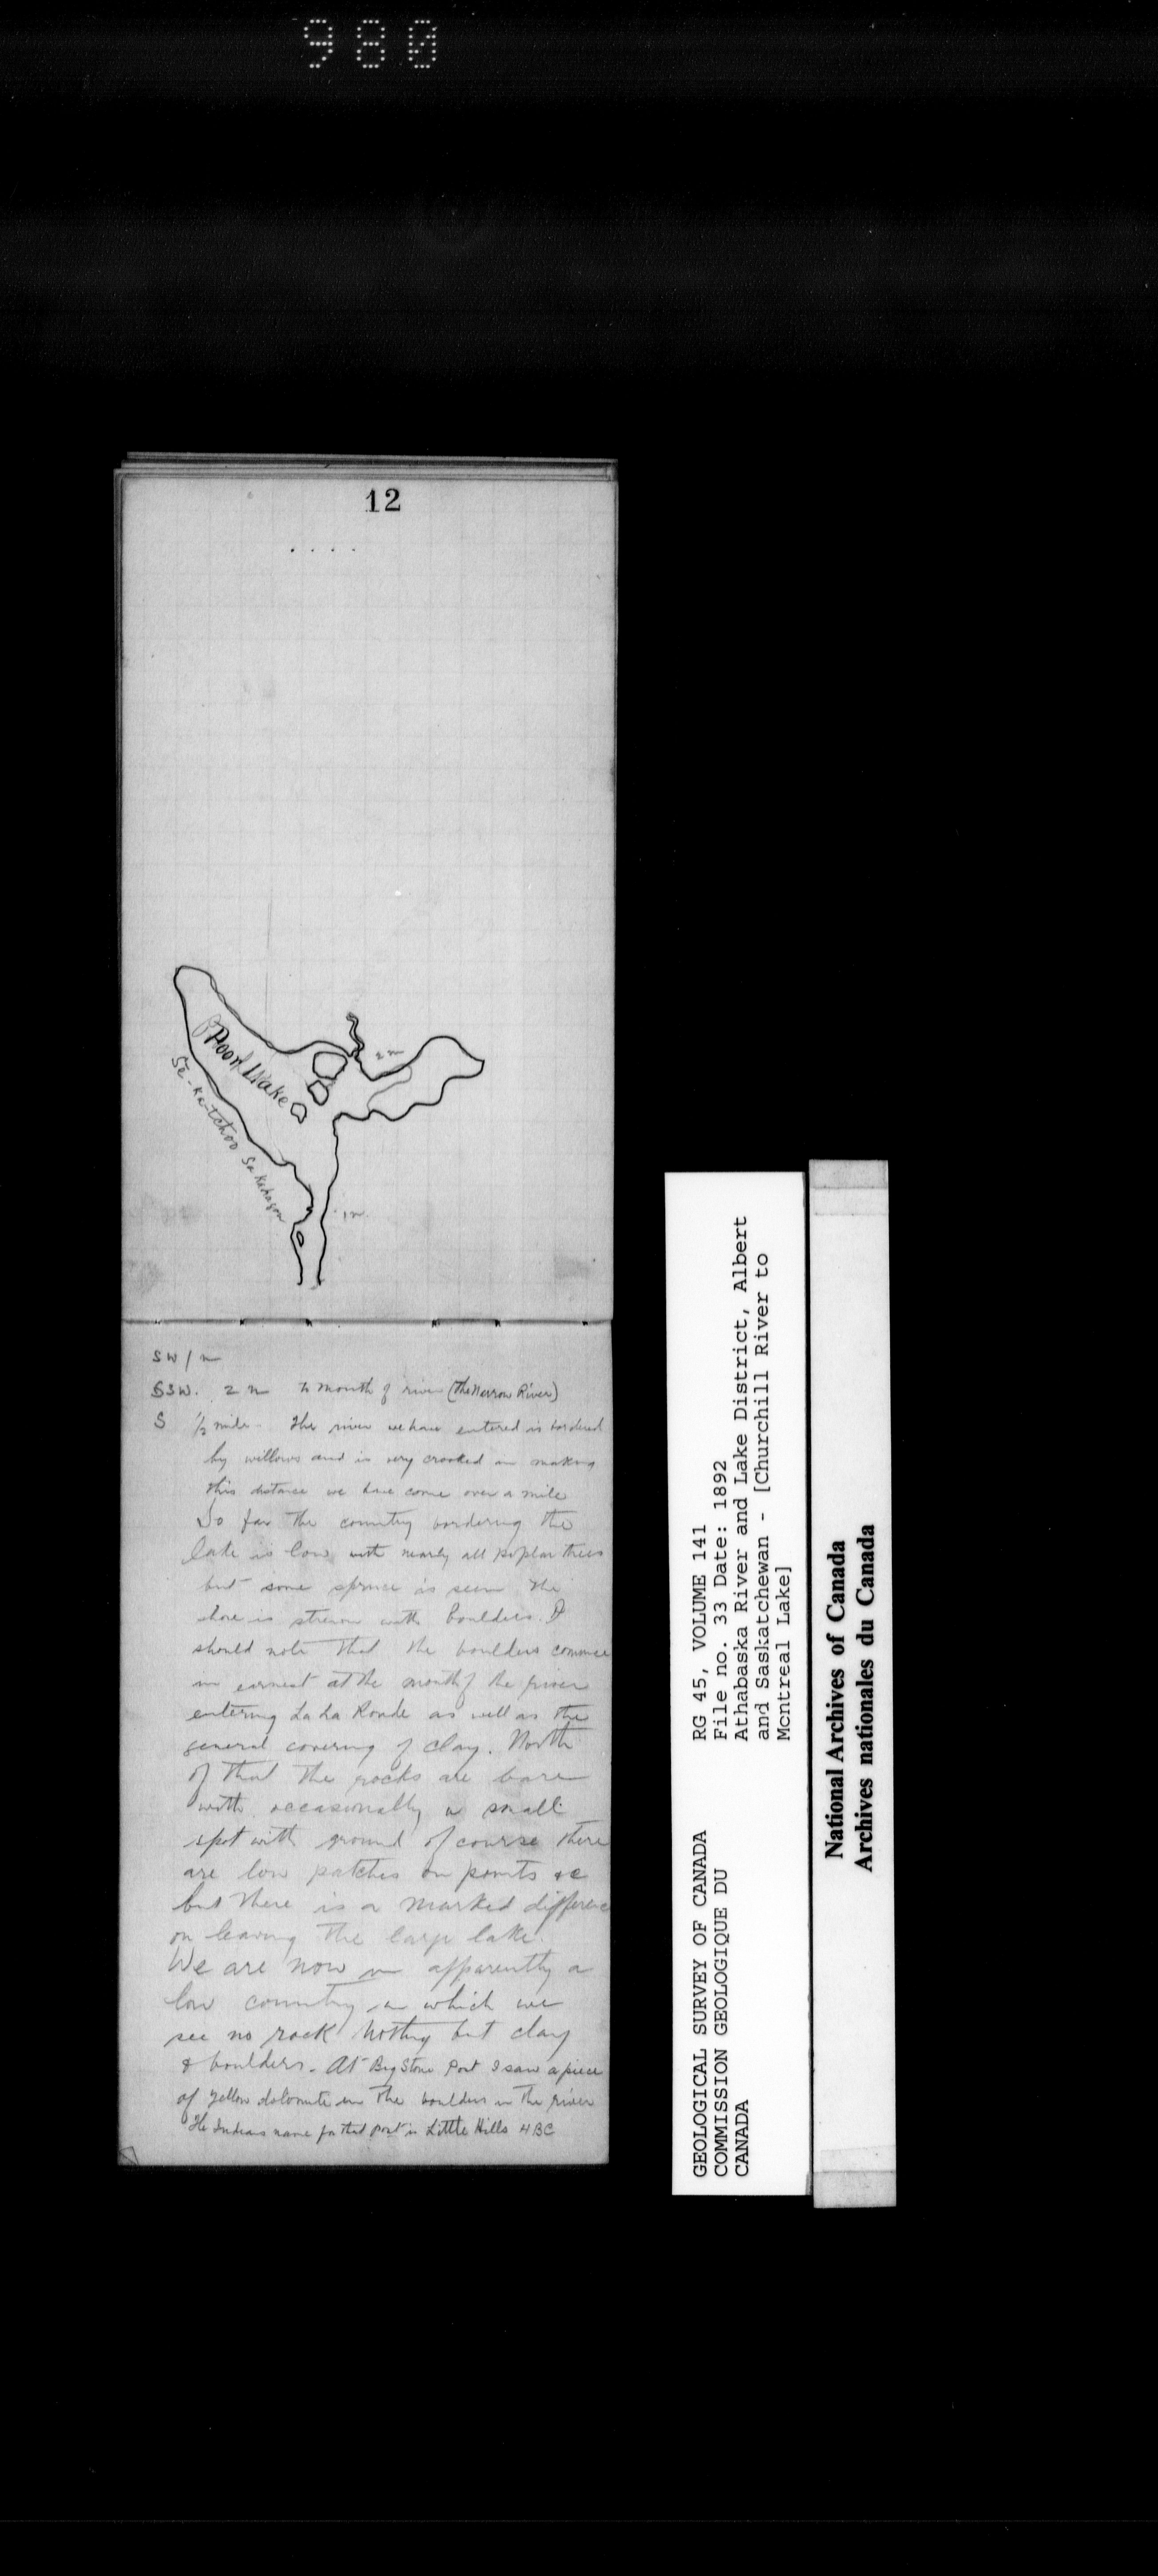 980
12
Poor Lake
Se-ka-tchoo Sakahagon
2 m
1 m
SW 1 m
SSW. 2 m to mouth of river (the Narrow River)
S ½ mile - The river we have entered is bordered
by willows and is very crooked in making
this distance we have come over a mile
So far the country bordering the
lake is low with nearly all poplar trees
but some spruce is seen the
shore is strewn with boulders. I
should note that the boulders commence
in earnest at the mouth of the river
entering La La Ronde as well as the
general covering of clay. North
of that the rocks are bare
with occasionally a small
spot with ground of course there
are low patches on points &c
but there is a marked difference
on leaving the large lake.
We are now in apparently a
low country in which we
see no rock nothing but clay
& boulders - At Big Stone Port I saw a piece
of yellow dolomite in the boulders in the river
The Indians name for that port is Little Hills HBC
GEOLOGICAL SURVEY OF CANADA
COMMISSION GEOLOGIQUE DU
CANADA
RG 45, VOLUME 141
File no. 33 Date: 1892
Athabaska River and Lake District, Albert
and Saskatchewan - [Churchill River to
Montreal Lake]
National Archives of Canada
Archives nationales du Canada